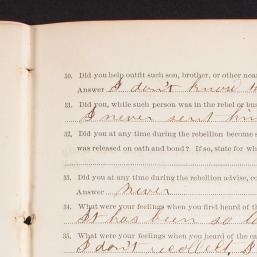 30. Did you help outfit such son, brother, or other near
Answer I don't know th
31. Did you, while such person was in the rebel or bus
I never sent him
32. Did you at any time during the rebellion become s
was released on oath and bond? If so, state for wh
33. Did you at any time during the rebellion advise, co
Answer never
34. What were your feelings when you first heard of the
It has been so lo
35. What were your feelings when you heard of the ca
I don't recollect, I